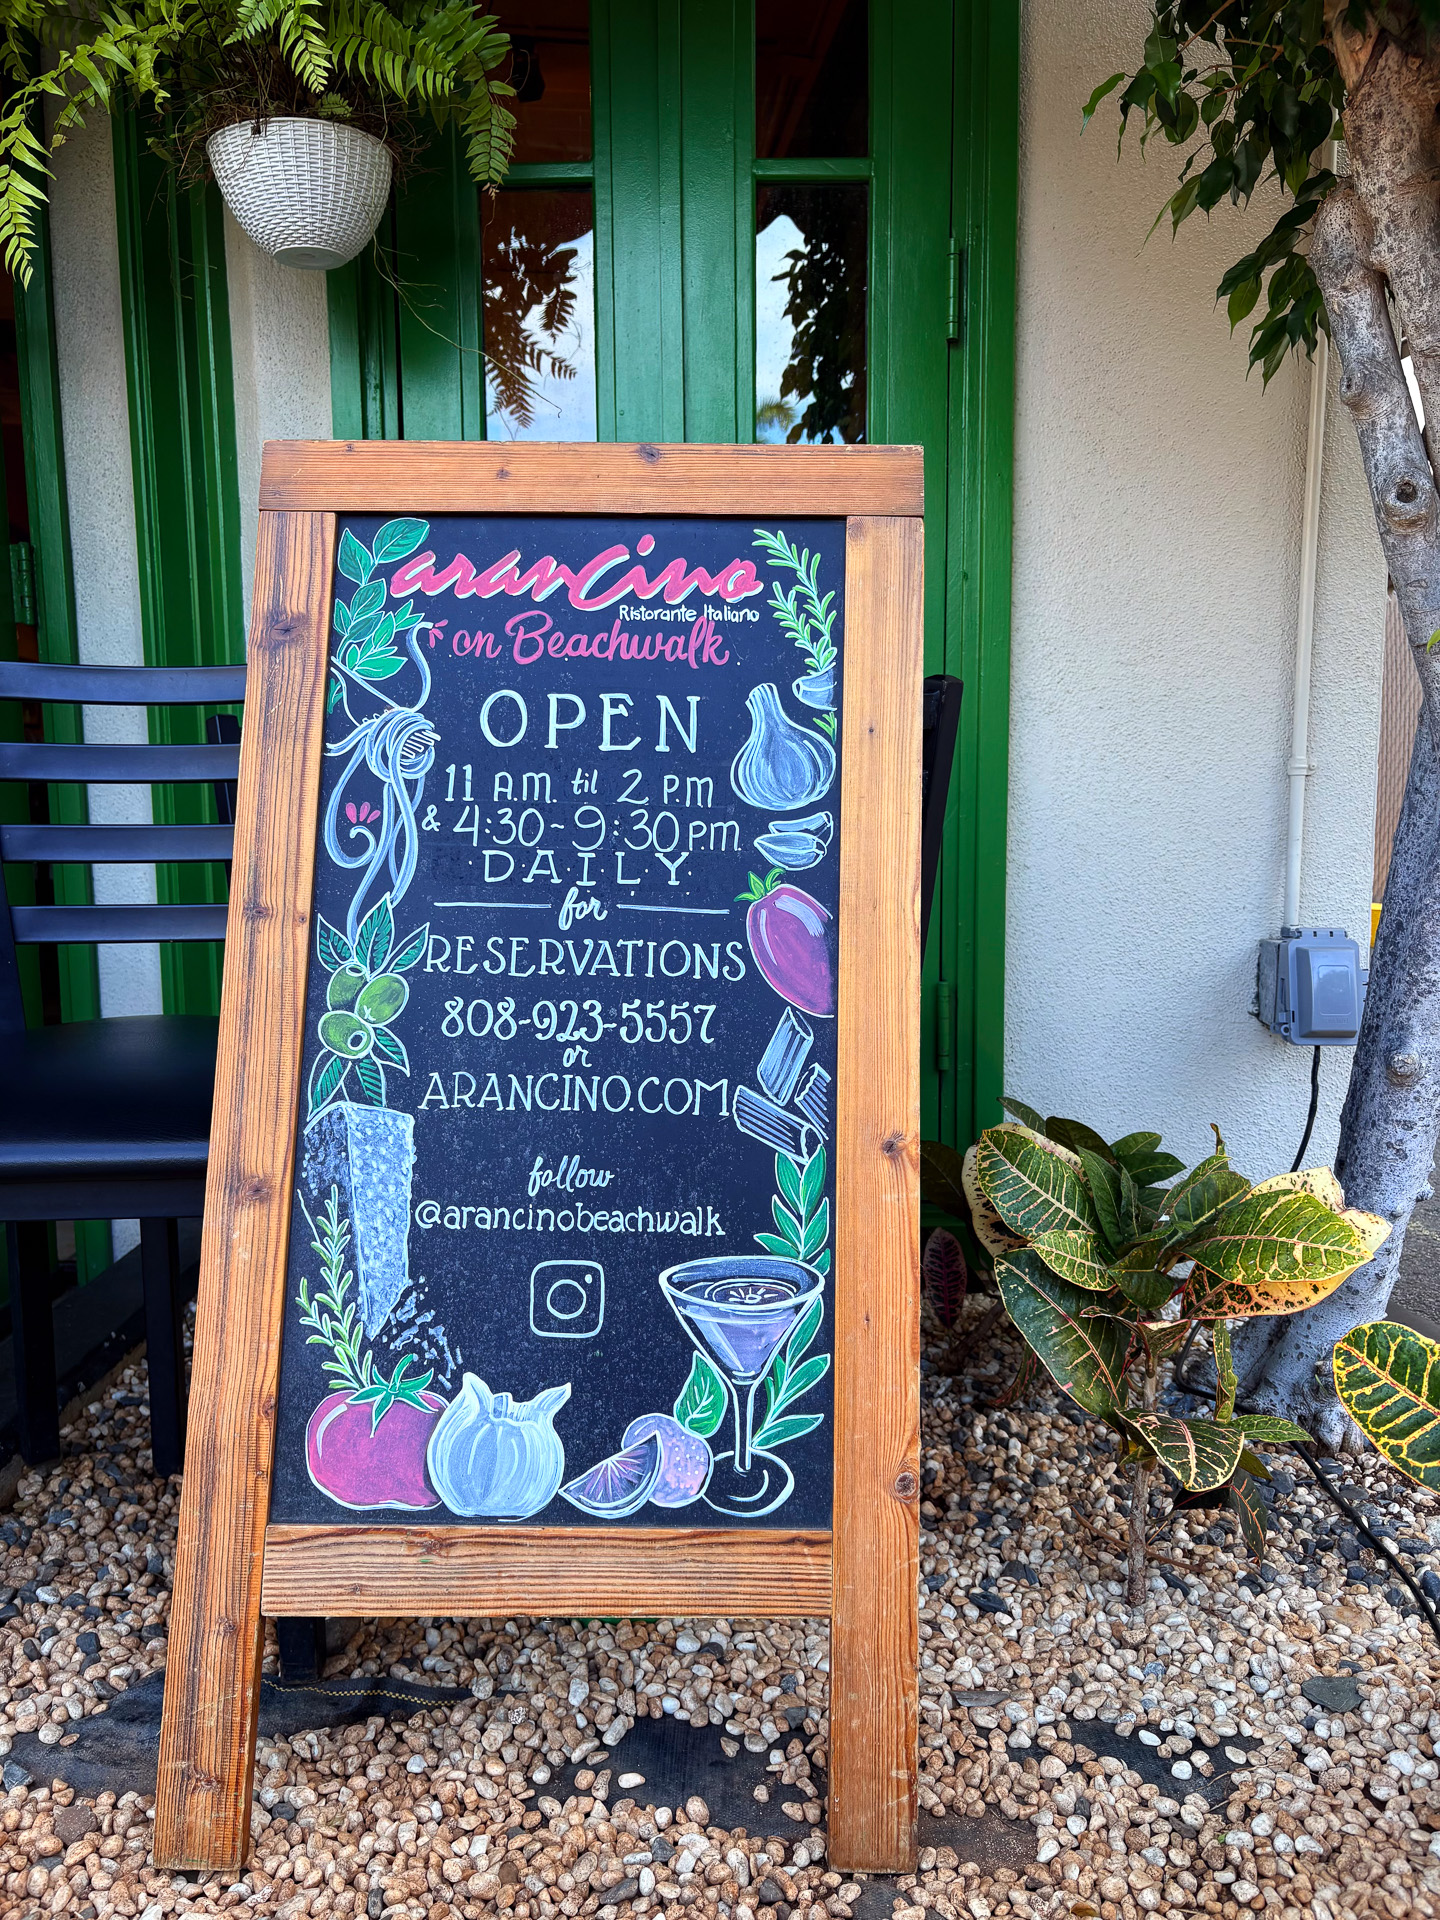 arancino
Ristorante Italiano
on Beachwalk
OPEN
11 A.M. til 2 P.M
& 4:30-9:30 P.M.
D·A·I·L·Y
for
RESERVATIONS
808-923-5557
or
ARANCINO.COM
follow
@arancinobeachwalk